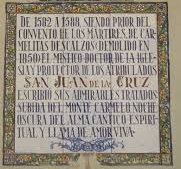 DE 1582 A 1588, SIENDO PRIOR DEL
CONVENTO DE LOS MÁRTIRES, DE CAR-
MELITAS DESCALZOS (DEMOLIDO EN
1850) EL MÍSTICO DOCTOR DE LA IGLE-
SIA Y PROTECTOR DE LOS ATRIBULADOS
SAN JUAN DE LA CRUZ
ESCRIBIÓ SUS ADMIRABLES TRATADOS
SUBIDA DEL MONTE CARMELO NOCHE
OSCURA DEL ALMA CÁNTICO ESPIRI-
TUAL Y LLAMA DE AMOR VIVA